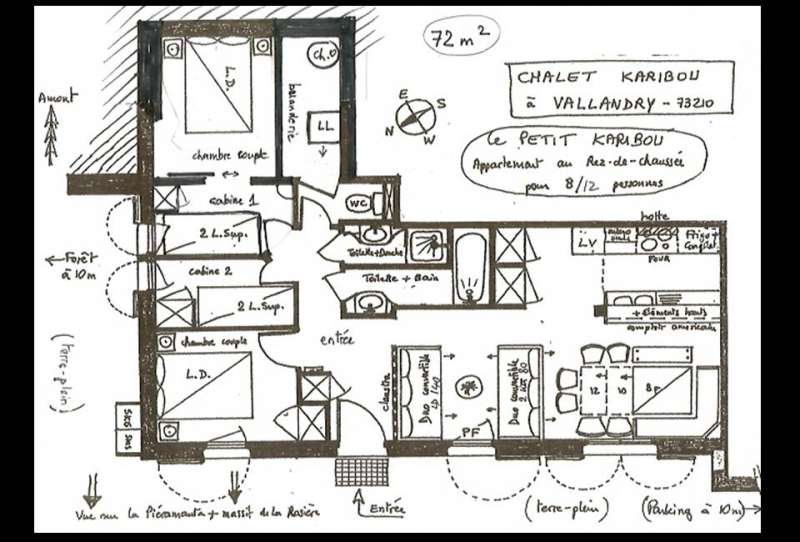 72 m²
CHALET KARIBOU
à VALLANDRY - 73210
Le PETIT KARIBOU
Appartement au Rez-de-chaussée
pour 8/12 personnes
Amont
E
S
N
W
L.D.
chambre couple
buanderie
Ch.
LL
WC
cabine 1
2 L. Sup.
cabine 2
2 L. Sup.
Forêt
à 10m
(terre-plein)
Toilette + Douche
Toilette + Bain
hotte
LV
micro
onde
FOUR
Frigo +
Congélat
+ éléments hauts
comptoir américain
chambre couple
L.D.
entrée
claustra
Duo convertible
Duo convertible
PF
12
10
8P
SKIS
SKIS
Entrée
Vue sur la Pierramenta + massif de la Rosière
(terre-plein)
(Parking à 10m)